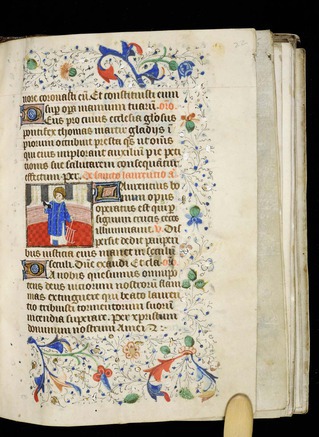 nore coronasti eū. Et constituisti eum
Dsup opa manuum tuarū. oro
Eus pro cuius ecclesia gľosus
pontifex thomas martir gladys i
piorum occubuit presta qs ut om̄s
qui eius implorant auxiliū pie peti
tionis sue salutarem consequantur
effectum. Per. De sancto laurentio a.
Laurentius bo
num opus
opatus est qui p
signum crucis cecos
illuminauit. V. Dis
perse dedit paupi
bus iusticia eius manet in seculū
seculi. Dn̄e exaudi. Et cla. oro.
DA nobis quesumus omnipo
tens deus uiciorum nostrorū flam
mas extinguere qui beato lauren
tio tribuisti tormentorum suorū
incendia superare. Per xpistum
dominum nostrum. Amen.